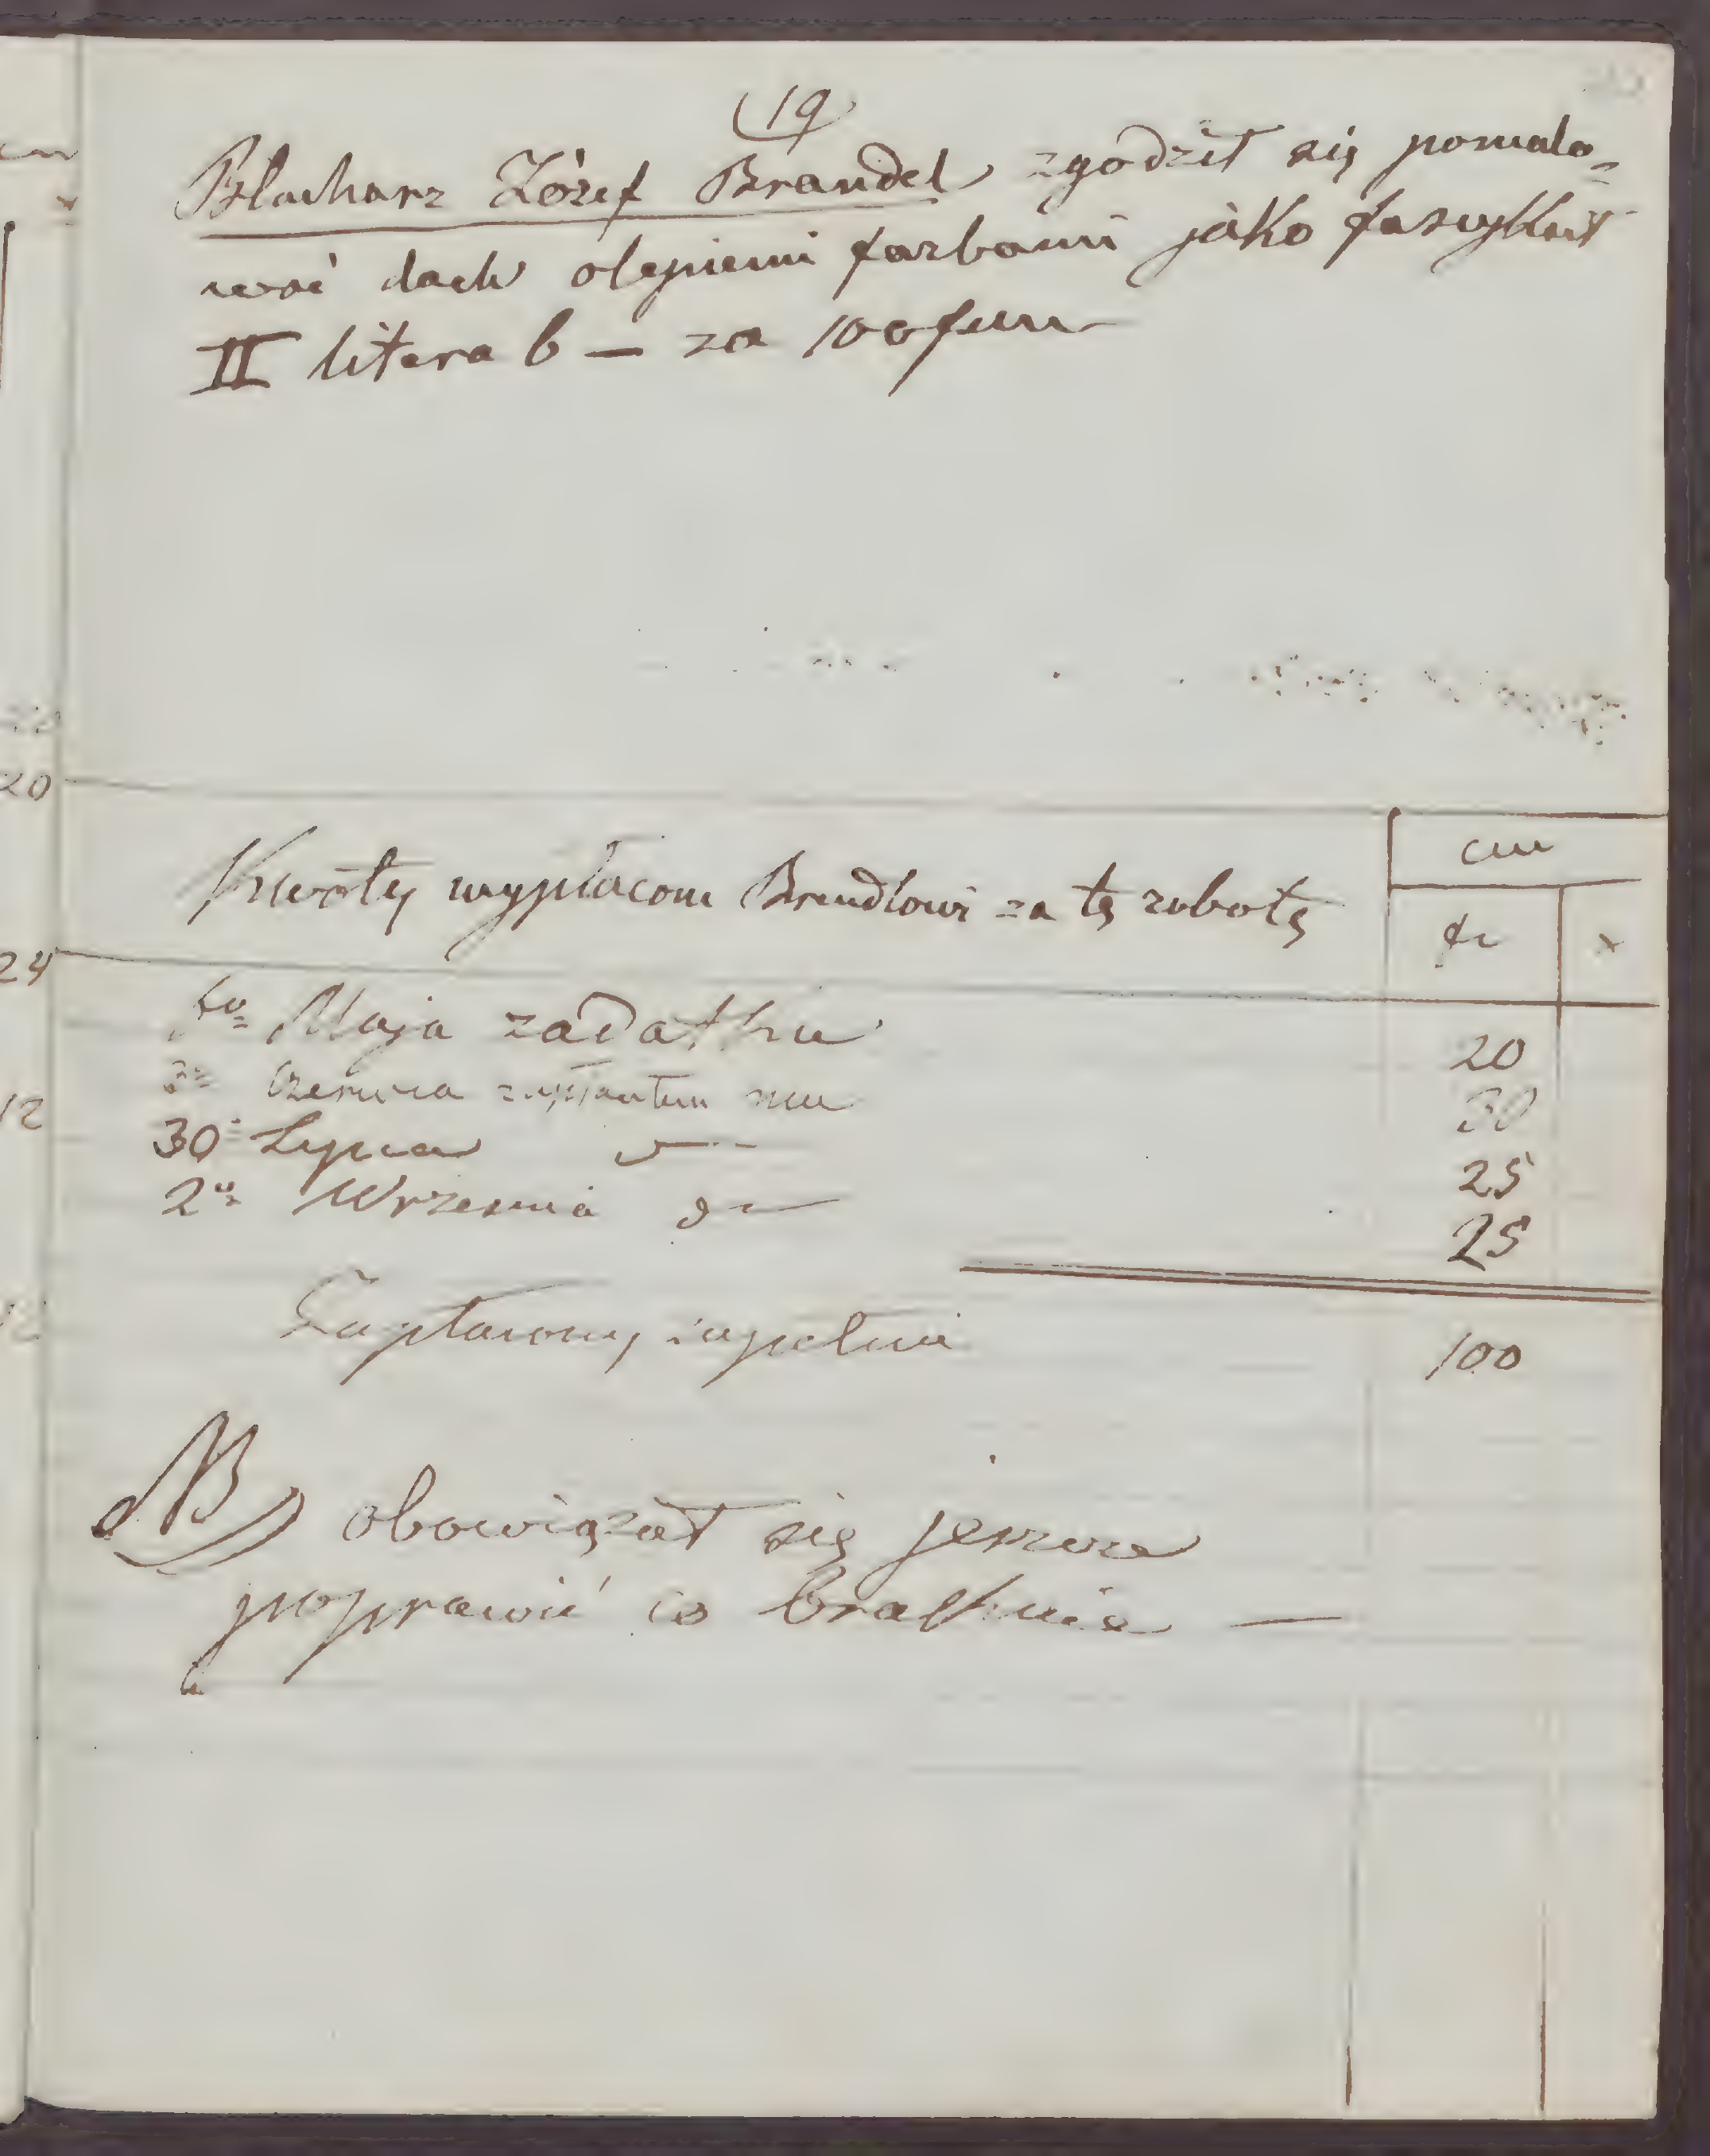 19
Blacharz Józef Brandel zgodził się pomalo=
wać dach olejnemi farbami jako fascykuł
II litera b — za 100 fcm
Kwoty wypłacone Brandlowi za tę robotę
cm
fr x
Maja zadatku 20
Czerwca zapłaciłem mu 30
30 Lipca 25
2º Wrzesnia do 25
Zapłacony zupełnie 100
NB obowiązał się jeszcze
poprawić co braknie —